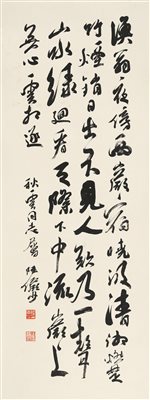 漁翁夜傍西巖宿曉汲清湘燃楚
竹煙銷日出不見人欸乃一聲
山水綠迴看天際下中流巖上
無心雲相逐
秋雲同志屬